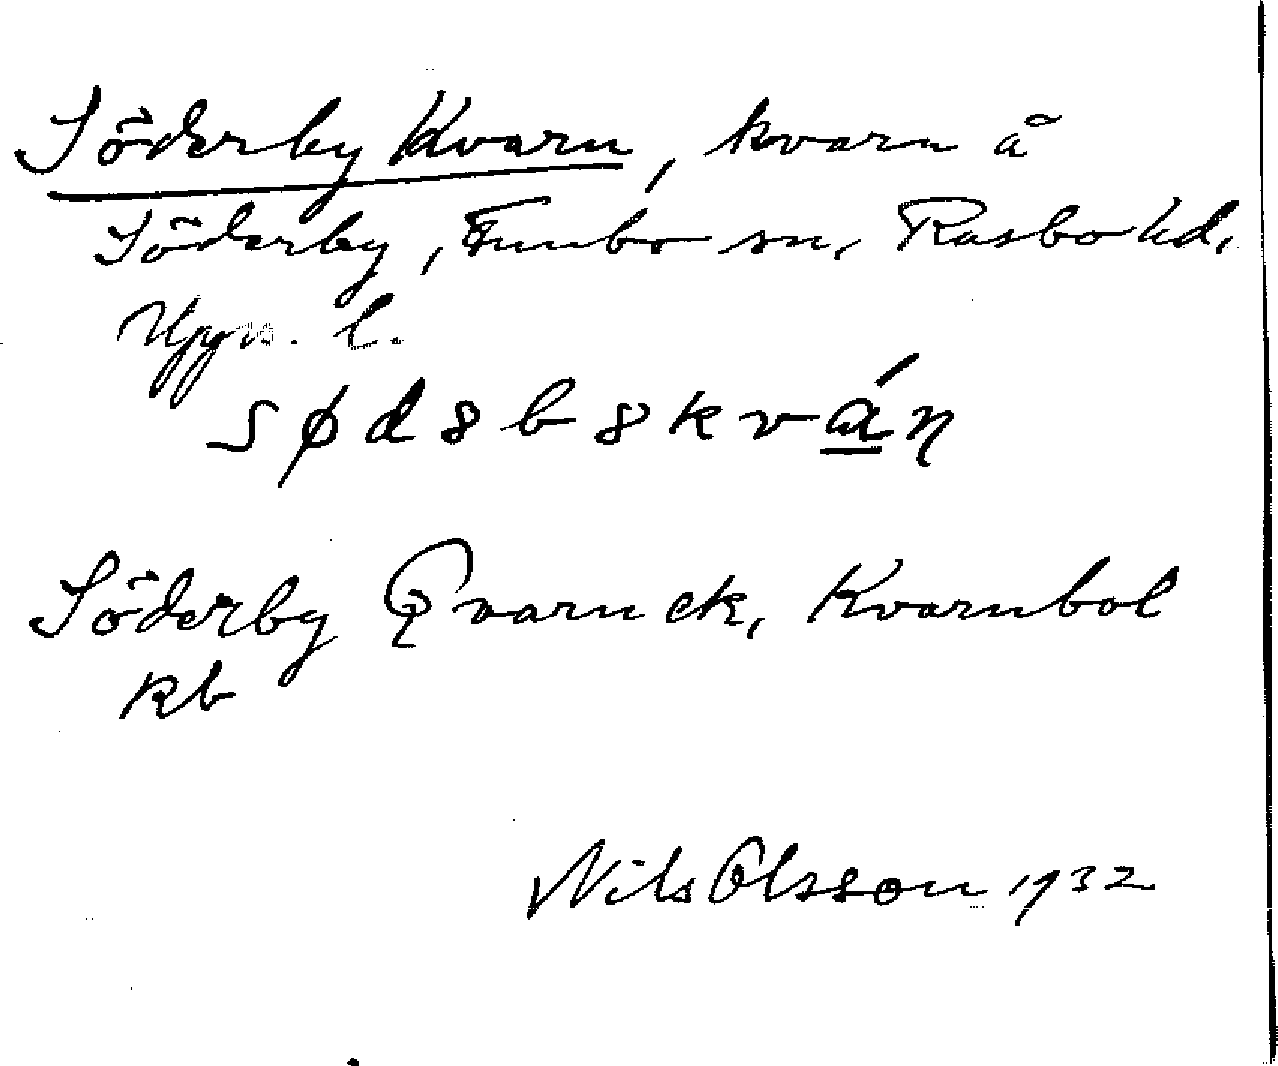 Söderby Kvarn, kvarn å
Söderby, Funbo sn, Rasbo hd,
Upps. l.
Söderby Qvarn ek, Kvarnbol
kb
Nils Olsson 1932